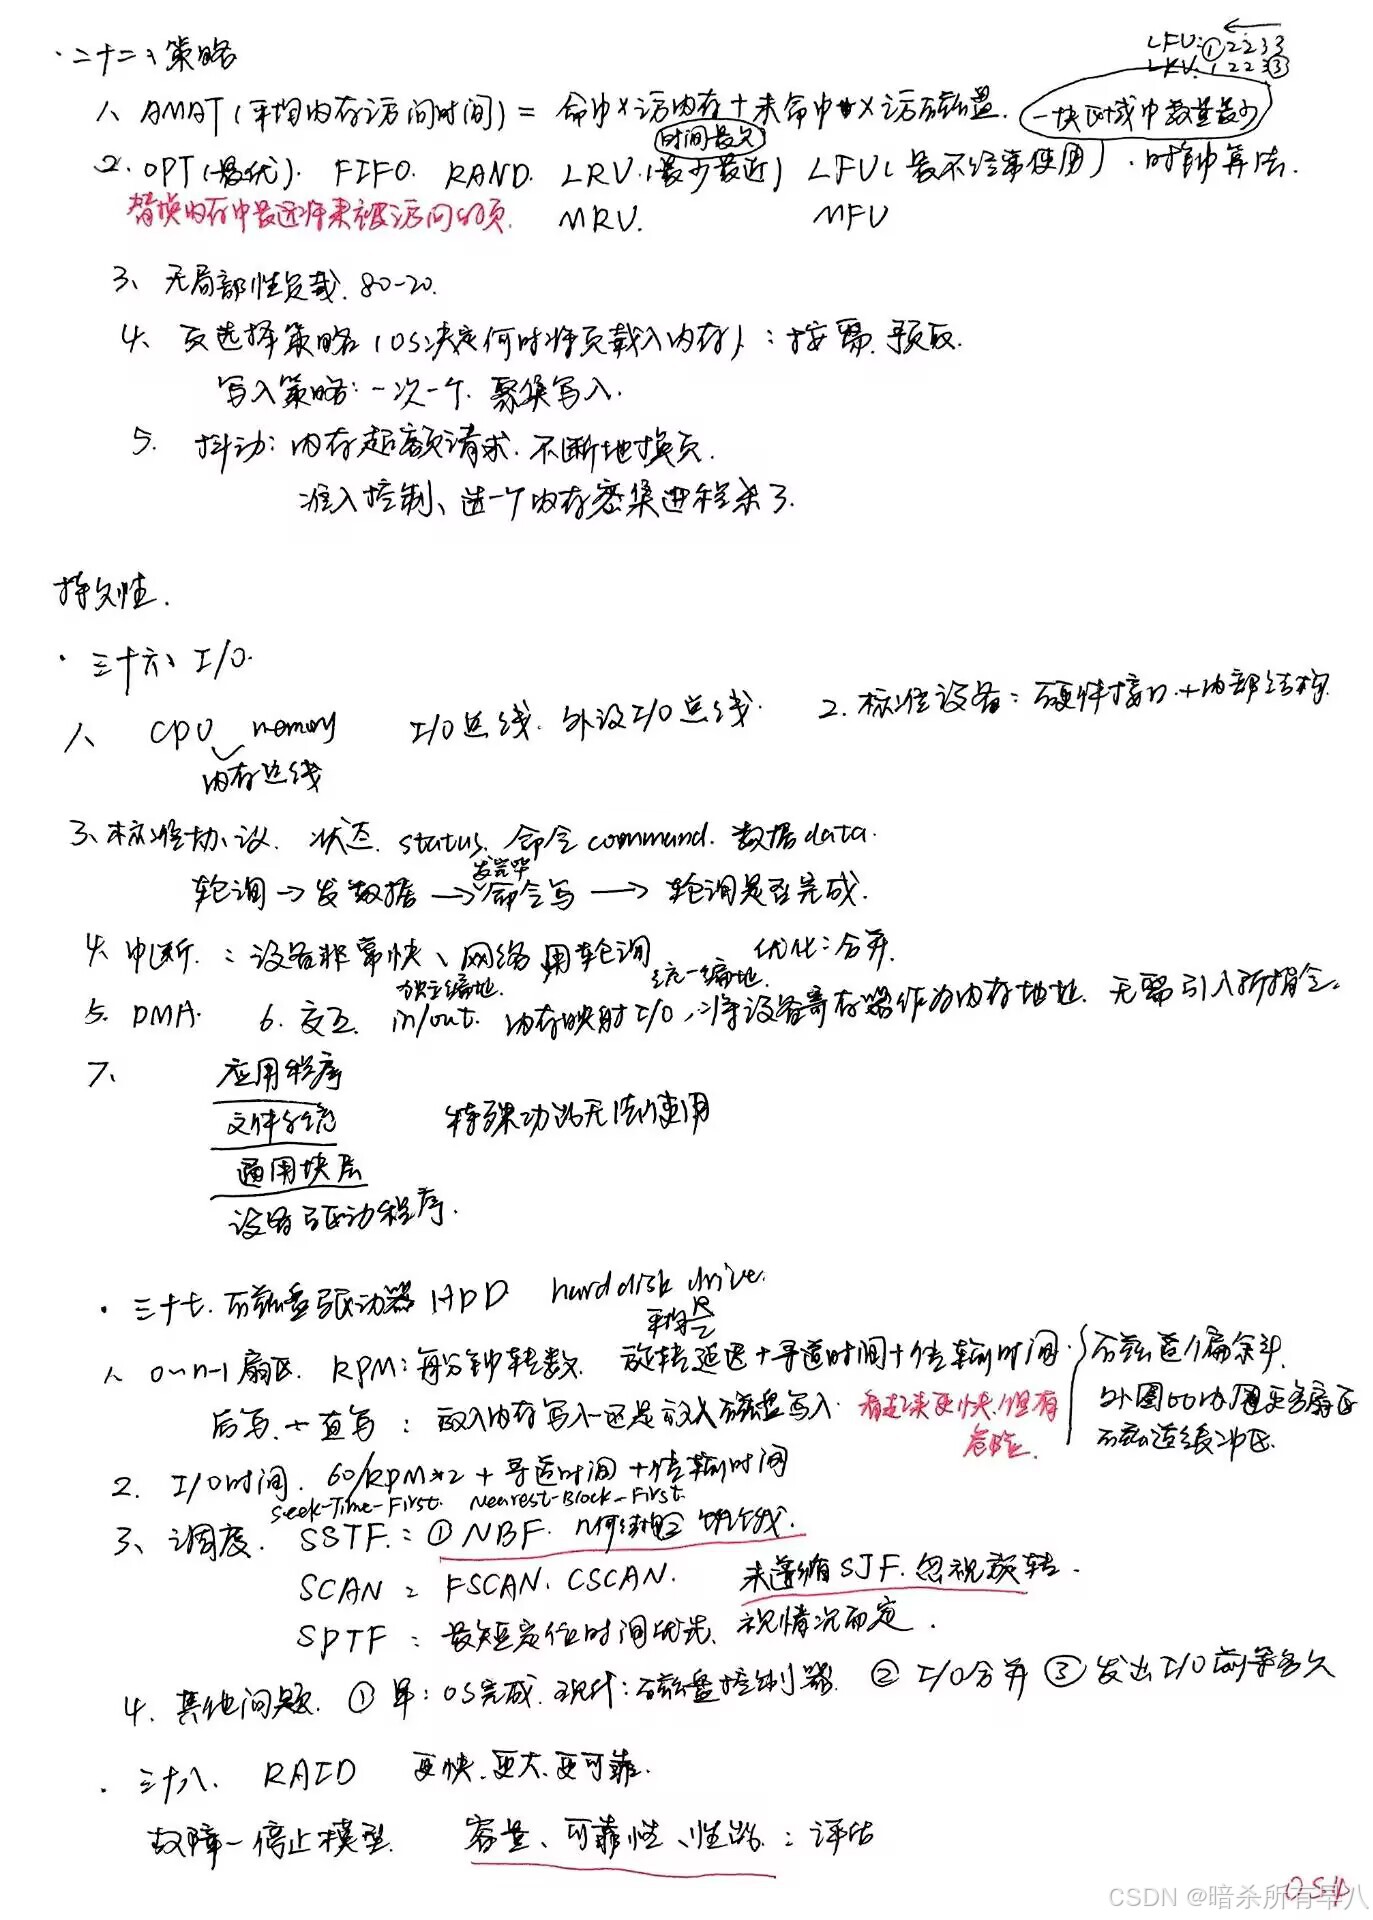 LFU: ① 2 2 3 3
· 二十二、策略
LRU: 1 2 2 3 ③
1、AMAT(平均内存访问时间) = 命中×访内存 + 未命中×访磁盘.
一块区域中数量最少
时间最久
2. OPT(最优). FIFO. RAND. LRU.(最少最近) LFU(最不经常使用). 时钟算法.
替换内存中最远将来被访问的页. MRU. MFU
3、无局部性负载. 80-20.
4、页选择策略(OS决定何时将页载入内存): 按需. 预取.
写入策略: 一次一个. 聚集写入.
5. 抖动: 内存超额请求. 不断地换页.
准入控制、选一个内存密集进程杀了.
持久性.
· 三十六、I/O.
1、CPU memory I/O总线. 外设I/O总线. 2. 标准设备: 硬件接口+内部结构
内存总线
3、标准协议. 状态 status. 命令command. 数据data.
发完毕
轮询→发数据→命令写→轮询是否完成.
4、中断.: 设备非常快、网络 用轮询 优化: 合并.
独立编地. 统一编地.
5. DMA. 6. 交互. in/out. 内存映射I/O, 将设备寄存器作为内存地址. 无需引入新指令.
7、应用程序
文件系统 特殊功能无法使用
通用块层
设备驱动程序.
· 三十七. 磁盘驱动器 HDD hard disk drive.
平均R/2
1、0~n-1扇区. RPM: 每分钟转数. 旋转延迟+寻道时间+传输时间. 磁道偏斜.
后写 + 直写: 放入内存写入还是放入磁盘写入. 看起来更快,但有危险. 外圈比内圈更多扇区
磁道缓冲区.
2. I/O时间. 60/RPM*2 + 寻道时间 + 传输时间
Seek-Time-First. Nearest-Block-First.
3、调度. SSTF.: ① NBF. 几何结构② 饥饿.
SCAN: FSCAN. CSCAN. 未遵循SJF. 忽视旋转.
SPTF: 最短定位时间优先、视情况而定.
4. 其他问题. ① 早: OS完成. 现代: 磁盘控制器. ② I/O合并 ③ 发出I/O前等多久
· 三十八. RAID 更快. 更大. 更可靠.
故障-停止模型. 容量、可靠性、性能.: 评估
CSDN @暗杀所有早八